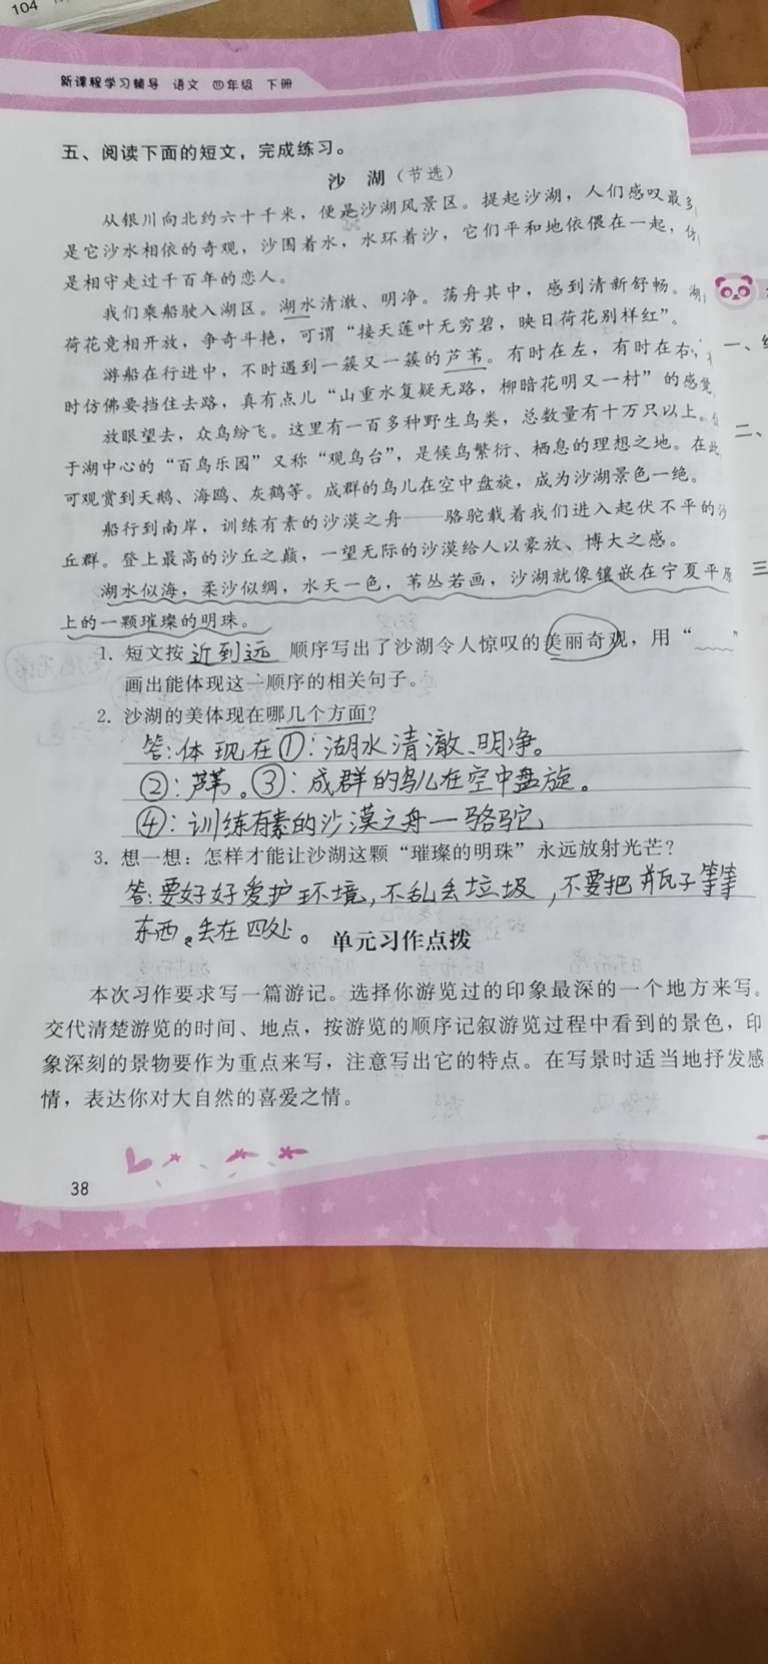 104
新课程学习辅导 语文 四年级 下册
五、阅读下面的短文，完成练习。
沙 湖（节选）
从银川向北约六十千米，便是沙湖风景区。提起沙湖，人们感叹最多
是它沙水相依的奇观，沙围着水，水环着沙，它们平和地依偎在一起，仿
是相守走过千百年的恋人。
我们乘船驶入湖区。湖水清澈、明净。荡舟其中，感到清新舒畅。湖
荷花竞相开放，争奇斗艳，可谓“接天莲叶无穷碧，映日荷花别样红”。
游船在行进中，不时遇到一簇又一簇的芦苇。有时在左，有时在右，
时仿佛要挡住去路，真有点儿“山重水复疑无路，柳暗花明又一村”的感觉
放眼望去，众鸟纷飞。这里有一百多种野生鸟类，总数量有十万只以上。
于湖中心的“百鸟乐园”又称“观鸟台”，是候鸟繁衍、栖息的理想之地。在此
可观赏到天鹅、海鸥、灰鹤等。成群的鸟儿在空中盘旋，成为沙湖景色一绝。
船行到南岸，训练有素的沙漠之舟——骆驼载着我们进入起伏不平的沙
丘群。登上最高的沙丘之巅，一望无际的沙漠给人以豪放、博大之感。
湖水似海，柔沙似绸，水天一色，苇丛若画，沙湖就像镶嵌在宁夏平原
上的一颗璀璨的明珠。
1. 短文按 近到远 顺序写出了沙湖令人惊叹的美丽奇观，用“﹏﹏”
画出能体现这一顺序的相关句子。
2. 沙湖的美体现在哪几个方面？
答:体现在①：湖水清澈、明净。
②：芦苇。③：成群的鸟儿在空中盘旋。
④：训练有素的沙漠之舟一骆驼、
3. 想一想：怎样才能让沙湖这颗“璀璨的明珠”永远放射光芒？
答:要好好爱护环境,不乱丢垃圾,不要把瓶子等等
东西。丢在四处。
单元习作点拨
本次习作要求写一篇游记。选择你游览过的印象最深的一个地方来写。
交代清楚游览的时间、地点，按游览的顺序记叙游览过程中看到的景色，印
象深刻的景物要作为重点来写，注意写出它的特点。在写景时适当地抒发感
情，表达你对大自然的喜爱之情。
38
一、
二、
三